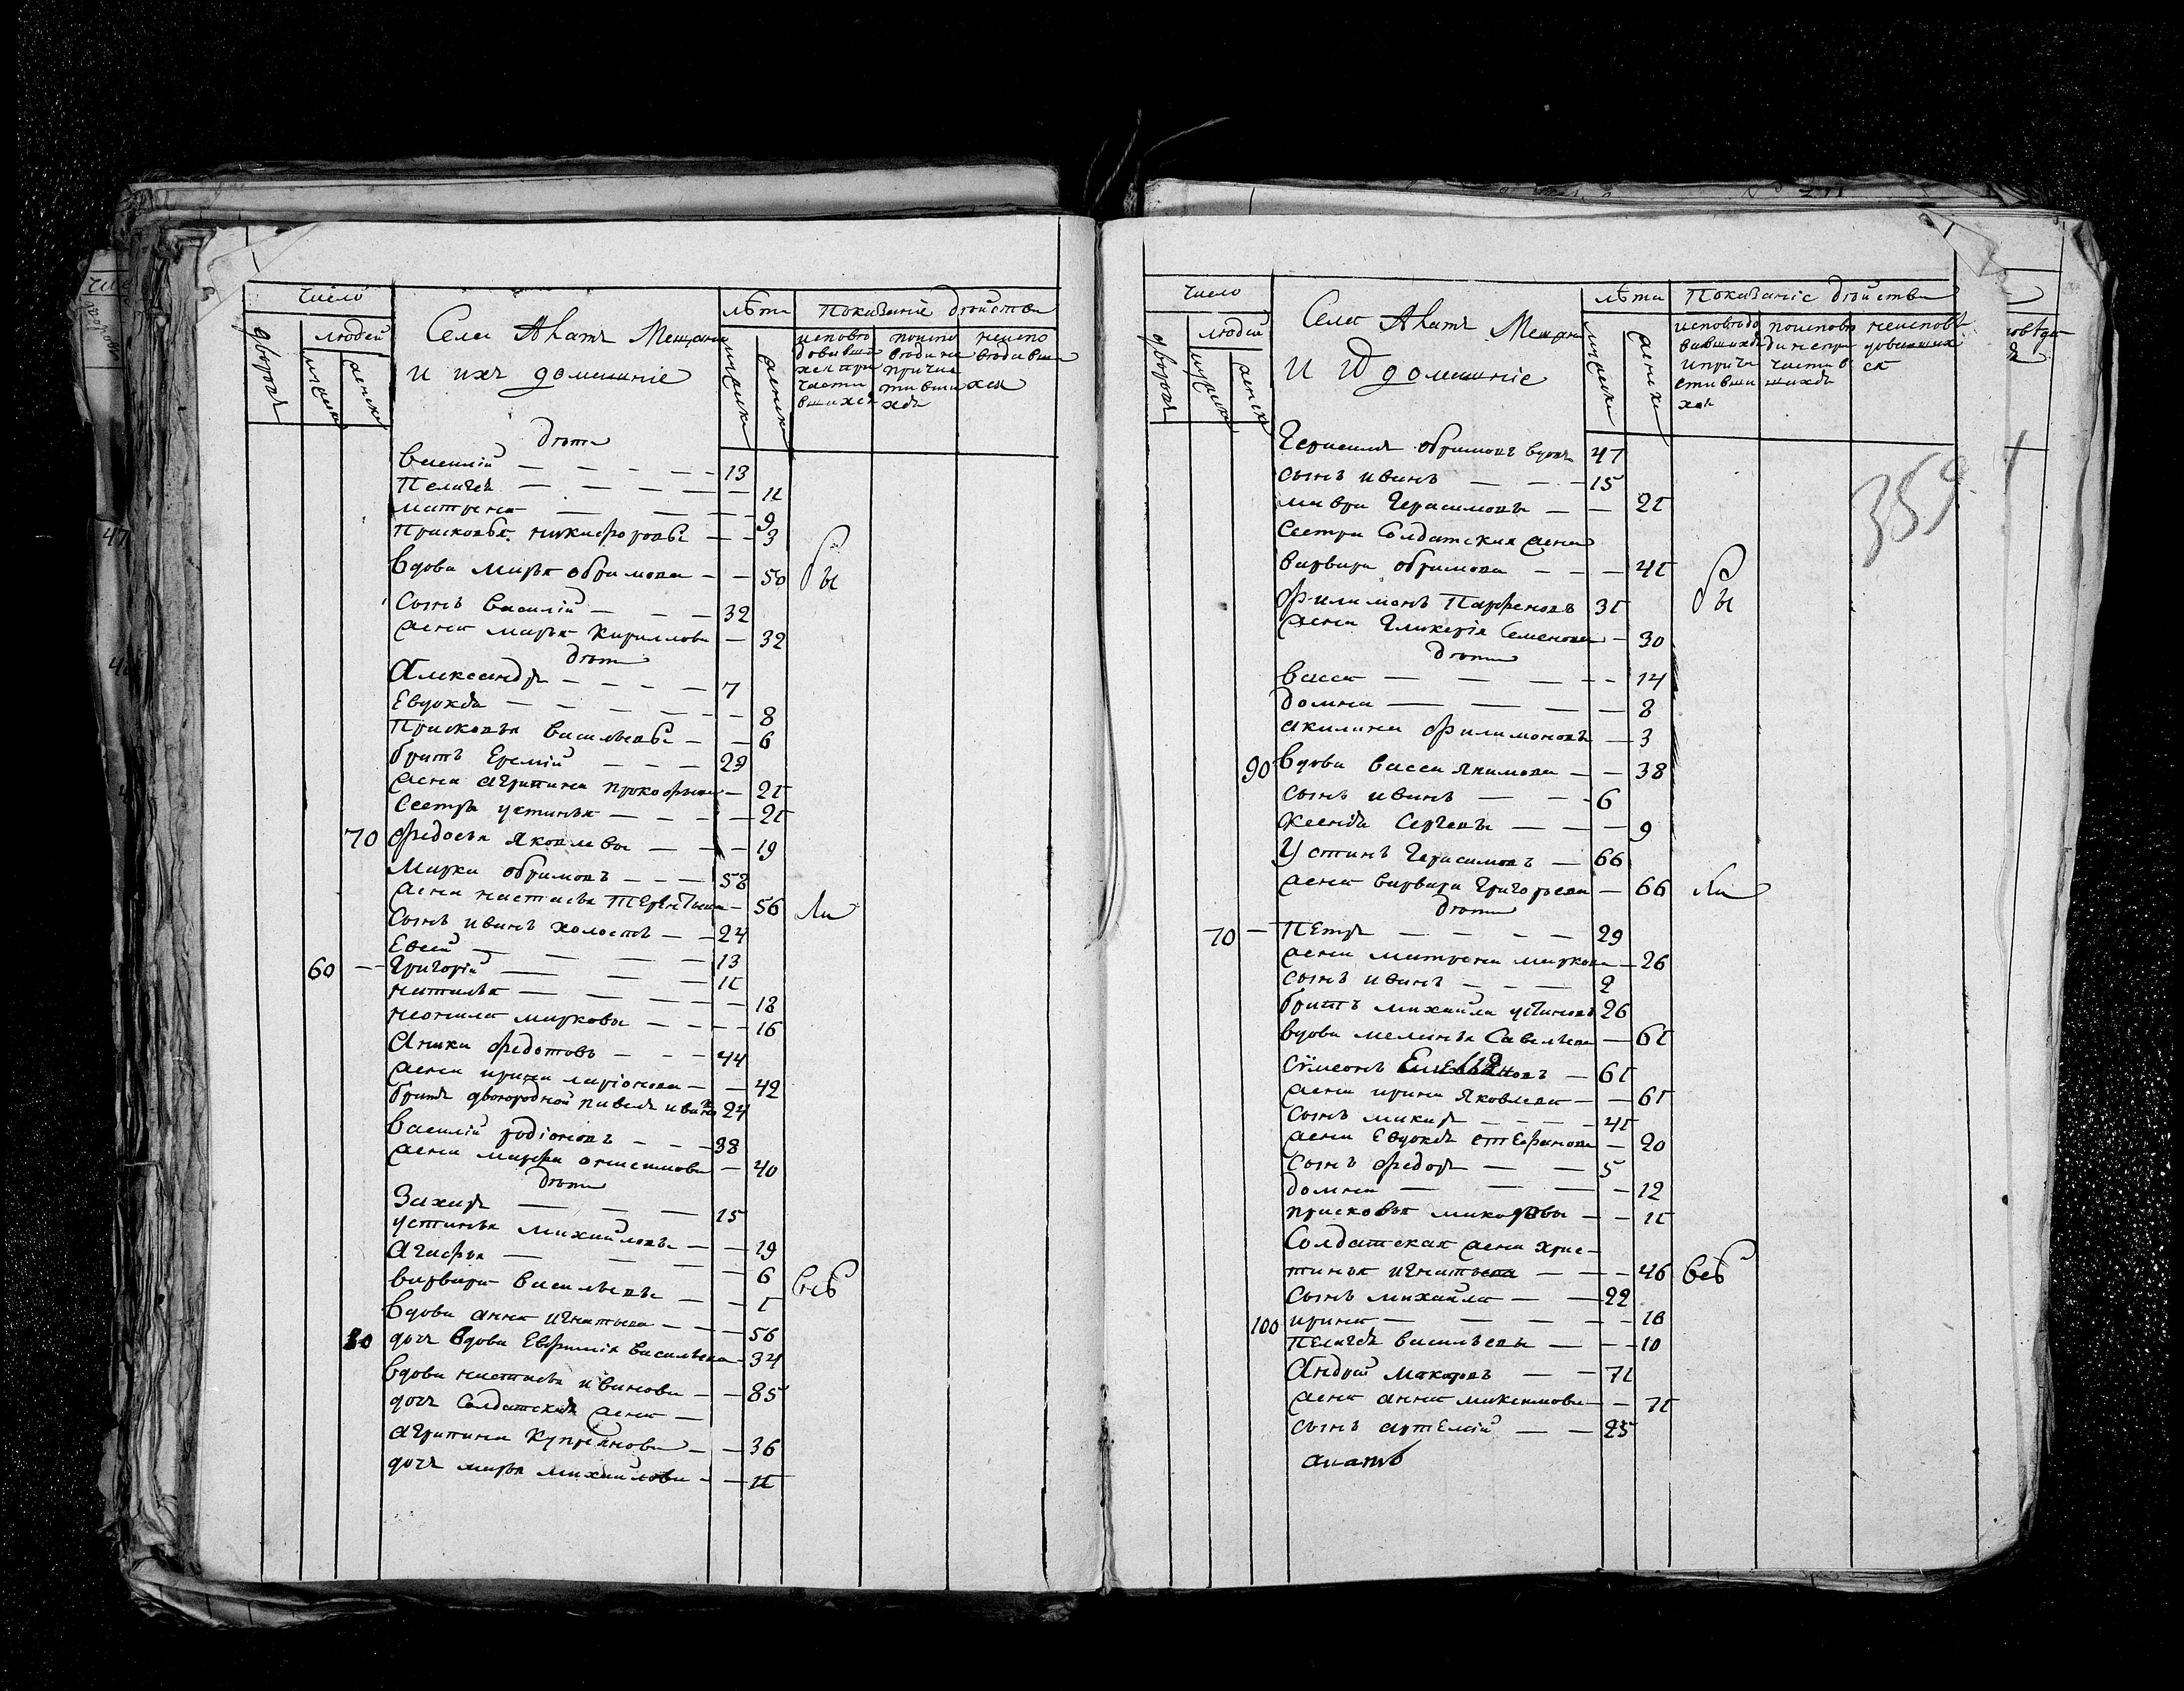 число
Села Анатъ Мещане
лѣта
Показаніе дѣйства
дворовъ
людей
и ихъ домашніе
мужска
женска
мужска
женска
исповѣдовавшихся и причастившихся
по исповѣди не причастившихся
не исповѣдавшихся
дѣти
василій — 13
Пелагея — 11
матрена — 9
Прасковья никифоровы — 3
вдова марья обрамова — 50 бы
сынъ василій — 32
жена марья кирилова — 32
дѣти
Александръ — 7
Евдокѣя — 8
Прасковья васильевы — 6
братъ Еремій — 29
жена агрипина прокофьева — 25
сестра устинья — 25
70 федосья Яковлевы — 19
Марка обрамовъ — 58
жена настасья терентьева — 56 ли
сынъ иванъ холостъ — 24
Евсей — 13
60 — григорій — 11
наталья — 18
неонила маркова — 16
Аника федотовъ — 44
жена ирина ларіонова — 42
братъ двоюродной павелъ иванов 24
василій родіоновъ — 38
жена марфа онисимова — 40
дѣти
Захаръ — 15
устинья михайловы — 19
Агафья — 6
варвара васильевы — 1 всѣ
вдова анна игнатьева — 56
80 дочь вдова Евфимія васильева — 34
вдова настасья иванова — 85
дочь Солдатская жена —
агрипина купреянова — 36
дочь марья михайлова — 11
число
Села Анатъ Мещане
лѣта
Показаніе дѣйства
дворовъ
людей
и ихъ домашніе
мужска
женска
мужска
женска
исповѣдовавшихся и причастившихся
по исповѣди не причастившихся
не исповѣдавшихся
359
Герасимъ обрамовъ вдовъ 47
сынъ иванъ — 15
мавра герасимовы — 21
сестра Солдатская жена
варвара обрамова — 41 бы
филимонъ Парфеновъ 31
жена гликерія Семенова — 30
дѣти
васса — 14
домна — 8
акилина филимоновы — 3
90 вдова васса якимова — 38
сынъ иванъ — 6
Ксенія Сергѣевы — 9
Устинъ герасимовъ — 66
жена варвара григорьева — 66 ли
дѣти
70 — петръ — 29
жена матрена маркова — 26
сынъ иванъ — 2
братъ михаила устиновъ 26
вдова меланья Савельева — 61
Сумеонъ Емельяновъ — 61
жена ирина Яковлева — 61
сынъ макаръ — 41
жена Евдокія стефанова — 20
сынъ федоръ — 5
домна — 12
прасковья макаровы — 11
Солдатская жена хрис-
тинья игнатьева — 46 всѣ
сынъ михаила — 22
100 ирина — 18
пелагея васильевы — 10
Андрей макаровъ — 71
жена анна максимова — 71
сынъ артемій — 25
анатъ